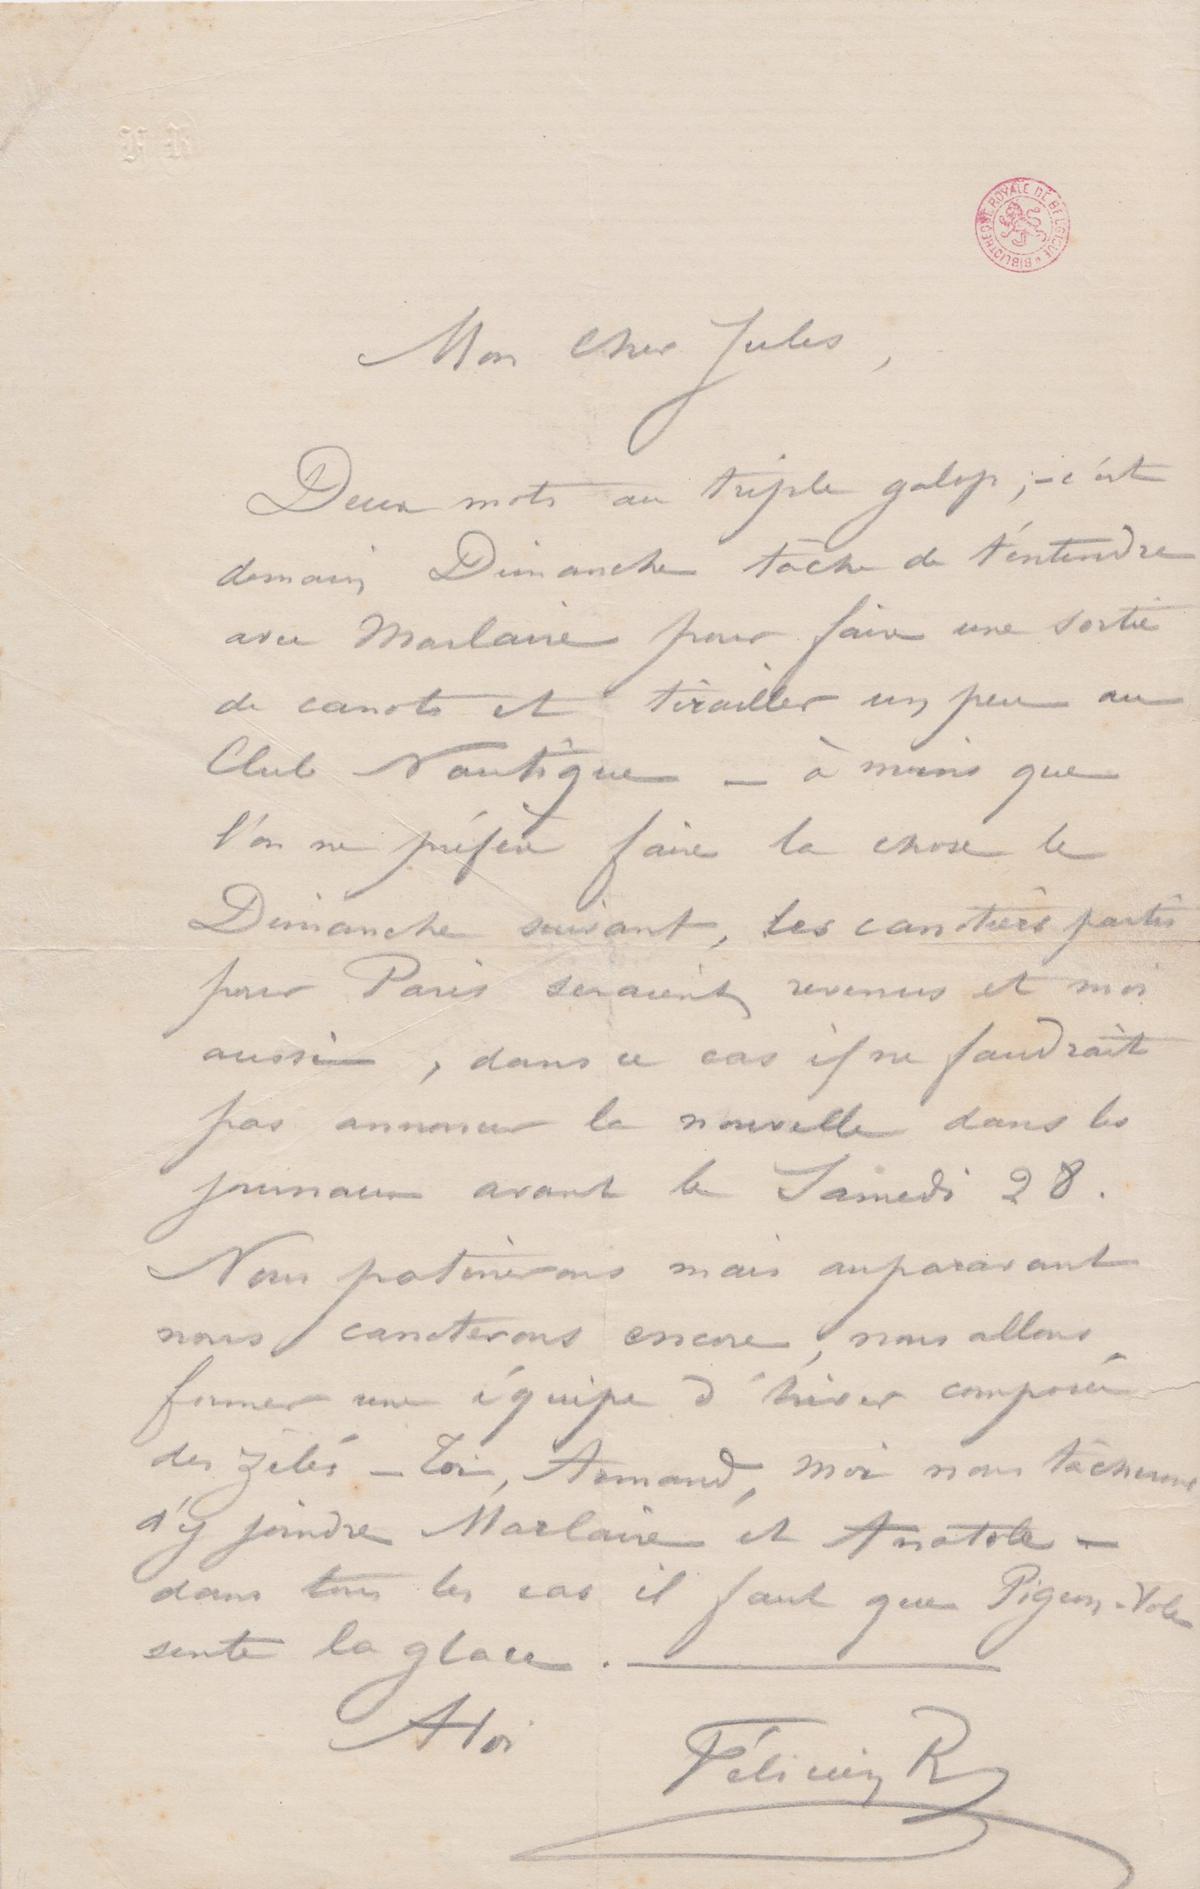 F R
BIBLIOTHÈQUE ROYALE DE BELGIQUE
Mon cher Jules,
Deux mots au triple galop ; – c'est
demain Dimanche tâche de t'entendre
avec Marlaire pour faire une sortie
de canots et tirailler un peu au
Club Nautique – à moins que
l'on ne préfère faire la chose le
Dimanche suivant, les canotiers partis
pour Paris seraient revenus et moi
aussi, dans ce cas il ne faudrait
pas annoncer la nouvelle dans les
journaux avant le Samedi 28.
Nous patinerons mais auparavant
nous canoterons encore, nous allons
former une équipe d'hiver composée
des zélés – Toi, Armand, moi nous tâcherons
d'y joindre Marlaire et Anatole –
dans tous les cas il faut que Pigeon-Vole
sente la glace.
A toi
Félicien R